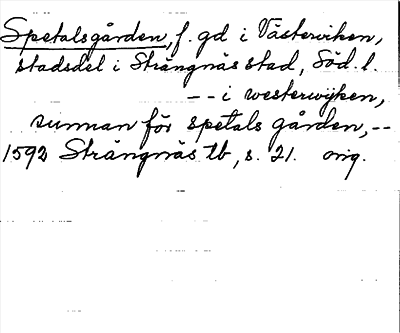 Spetalsgården, f. gd i Västerviken,
stadsdel i Strängnäs stad, Söd. l.
-- i westerwijken,
sunnan för spetals gården, --
1592 Strängnäs tb, s. 21. orig.